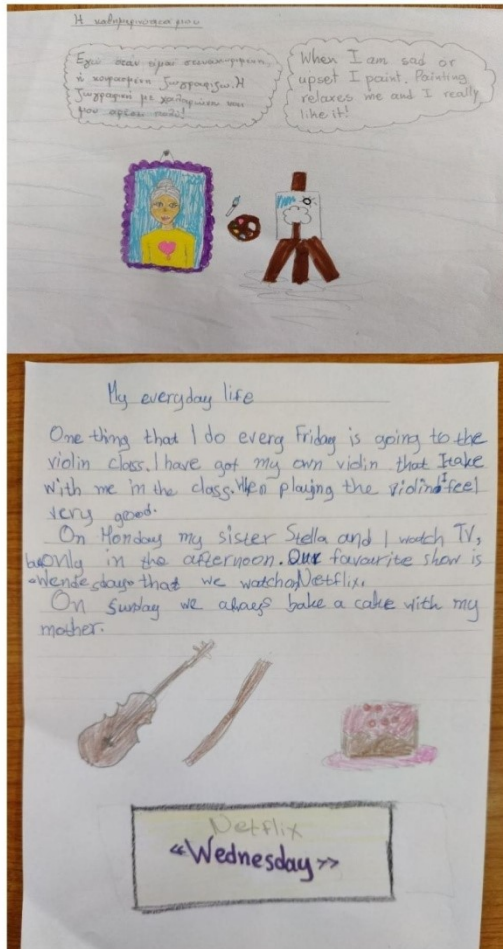 Η καθημερινότητά μου
Εγώ όταν είμαι στεναχωρημένη
ή κουρασμένη ζωγραφίζω. Η
ζωγραφική με χαλαρώνει και
μου αρέσει πολύ!
When I am sad or
upset I paint. Painting
relaxes me and I really
like it!
My everyday life
One thing that I do every Friday is going to the
violin class. I have got my own violin that I take
with me in the class. When playing the violin I feel
very good.
On Monday my sister Stella and I watch TV,
but only in the afternoon. Our favourite show is
«Wendesday» that we watch on Netflix.
On Sunday we always bake a cake with my
mother.
Netflix
«Wednesday»